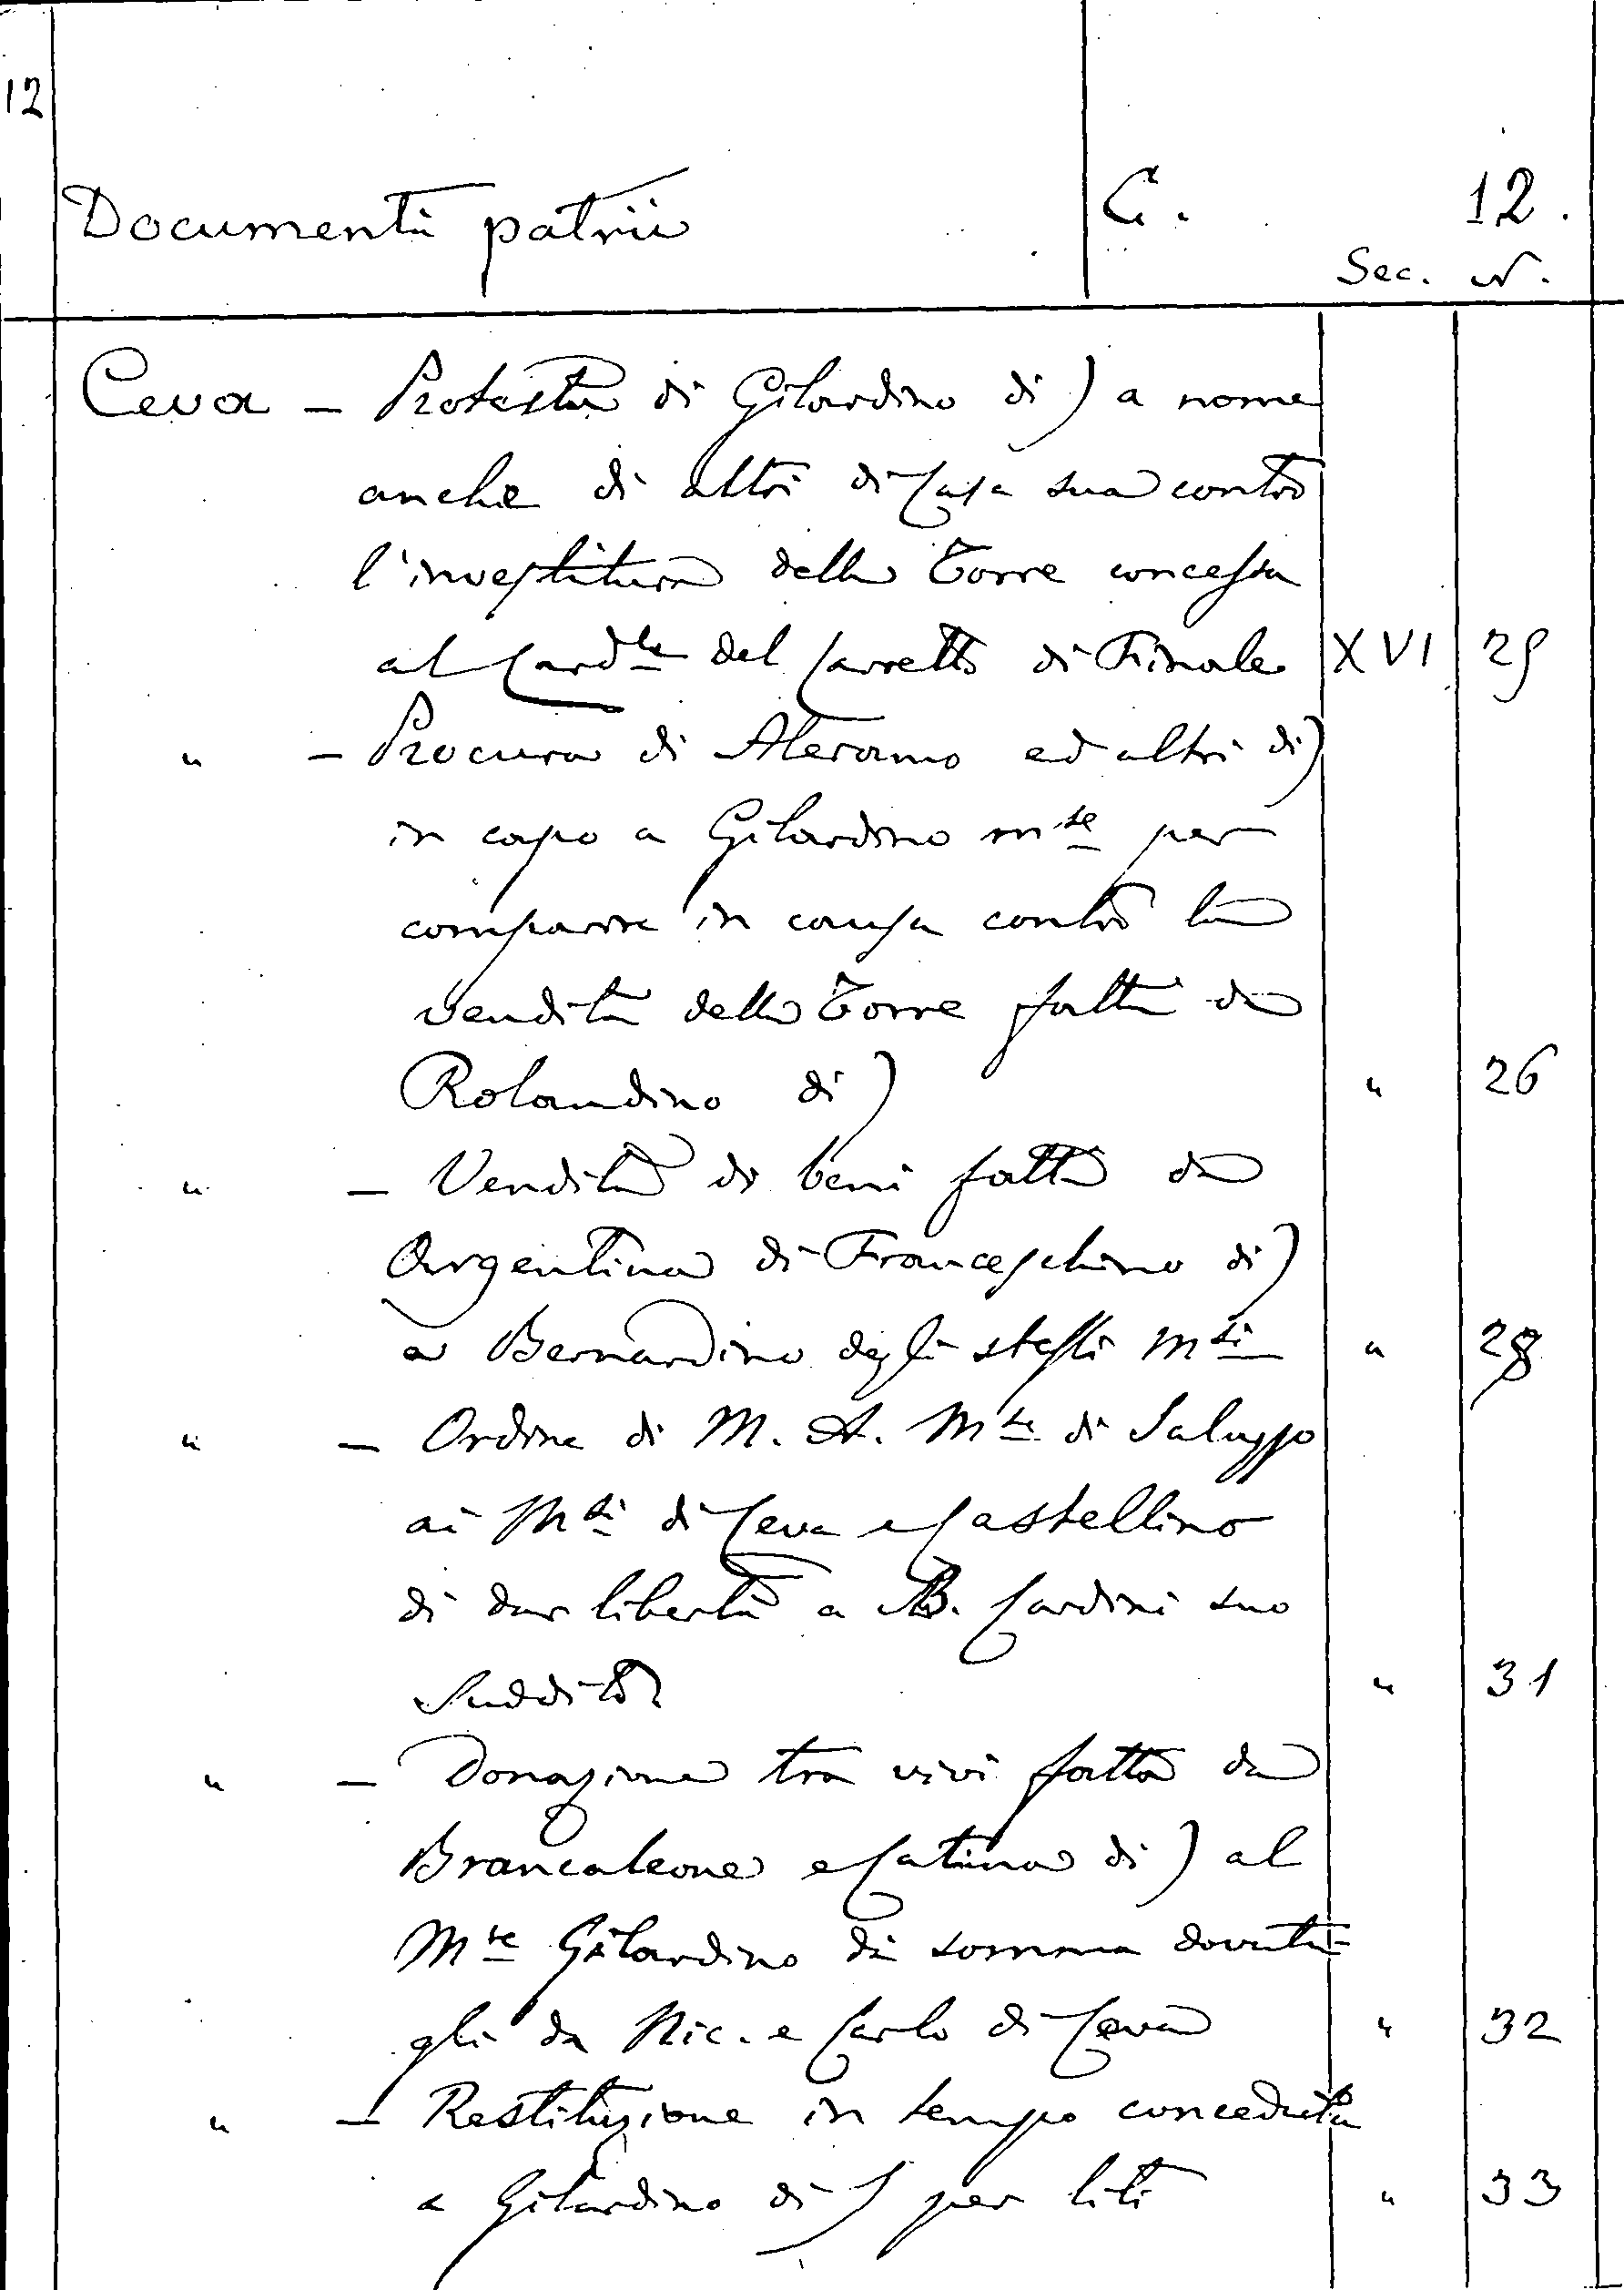 12
Documenti patrii C. 12.
Sec. N.
Ceva - Protesta di Gilardino di) a nome
anche di altri di Casa sua contro
l'investitura della Torre concessa
al Card.le del Carretto di Finale XVI 25
" - Procura di Aleramo ed altri di)
in capo a Gilardino m.se per
comparire in causa contro la
vendita della Torre fatta da
Rolandino di) " 26
" - Vendita di beni fatta da
Argentina di Franceschino di)
a Bernardino degli stessi M.si " 28
" - Ordine di M. A. M.se di Saluzzo
ai M.si di Ceva e Castellino
di dar libertà a B. Cardini suo
suddito " 31
" - Donazione tra vivi fatta da
Brancaleone e Catina di) al
M.se Gilardino di somma dovuta-
gli da Nic. e Carlo di Ceva " 32
" - Restituzione in tempo conceduta
a Gilardino di) per liti " 33